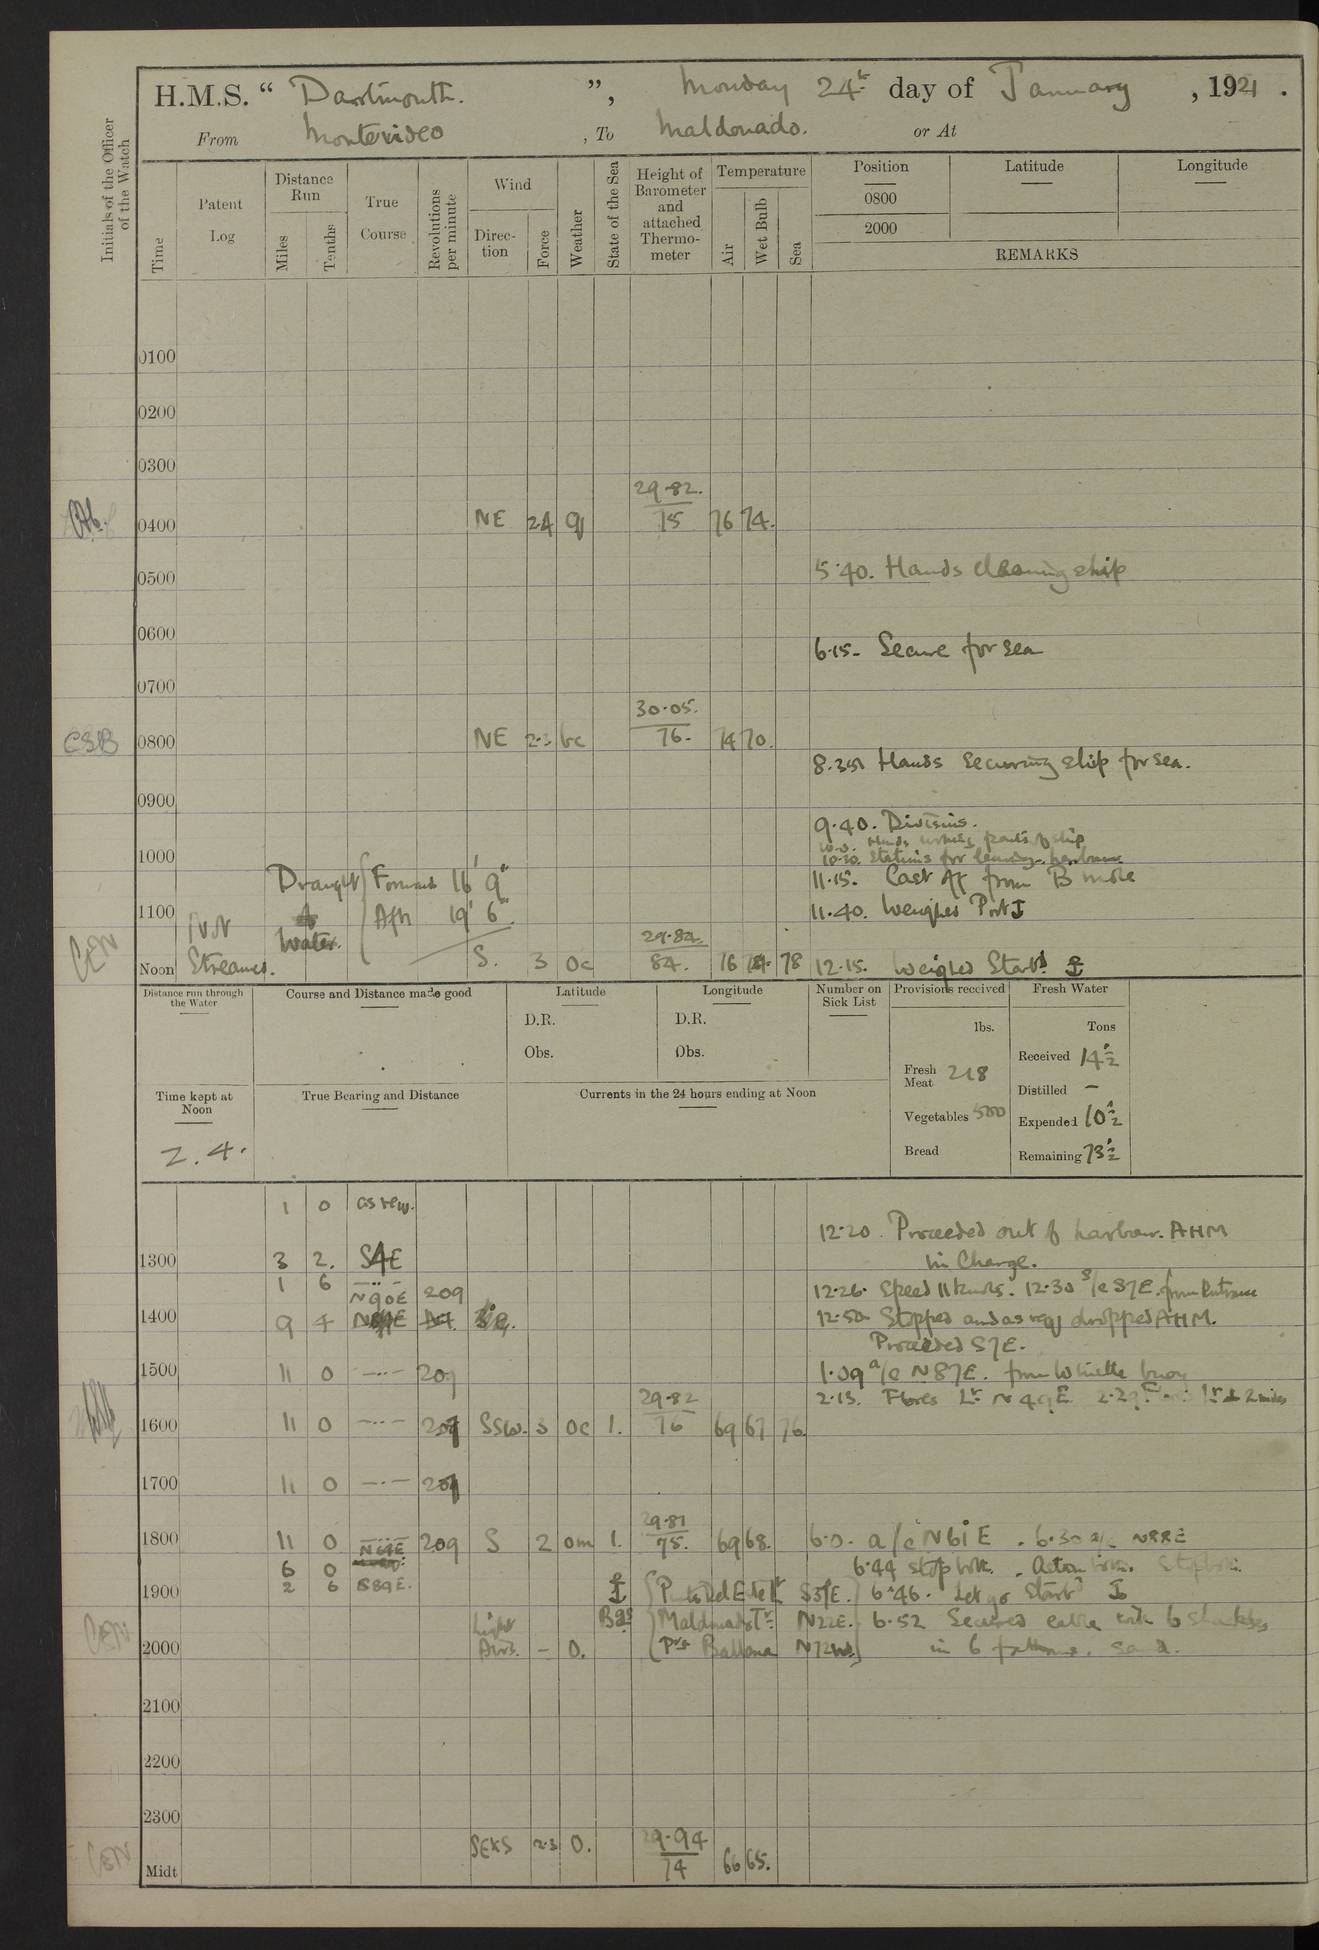 H.M.S. “ Dartmouth. ”, Monday 24th day of January , 1921 .
From Montevideo , To Maldonado. or At
Initials of the Officer of the Watch
Time
Patent Log
Distance Run
Miles
Tenths
True Course
Revolutions per minute
Wind
Direction
Force
Weather
State of the Sea
Height of Barometer and attached Thermometer
Temperature
Air
Wet Bulb
Sea
Position Latitude Longitude
0800
2000
REMARKS
0100
0200
0300
29.82.
0400 NE 2.4 q 75 76 74.
0500 5.40. Hands cleaning ship
0600 6.15. Secure for sea
0700
30.05.
CSB 0800 NE 2.3 bc 76. 74 70.
8.35 Hands securing ship for sea.
0900
9.40. Divisions.
Hands parts of ship
1000 10.30. Stations for leaving harbour
Draught Forward 16' 9" 11.15. Cast off from B mole
1100 of Aft 19' 6" 11.40. Weighed Port
Water.
29.84.
Noon Streamed. S. 3 oc 84. 76 78 12.15. Weighed Starbd.
Distance run through the Water
Course and Distance made good
Latitude
D.R.
Obs.
Longitude
D.R.
Obs.
Number on Sick List
Provisions received
lbs.
Fresh Meat 218
Vegetables 500
Bread
Fresh Water
Tons
Received 14½
Distilled –
Expended 10½
Remaining 73½
Time kept at Noon
Z. 4.
True Bearing and Distance
Currents in the 24 hours ending at Noon
1 0 as req.
12.20. Proceeded out of harbour. AHM
1300 3 2. S7E in Charge.
1 6 N90E 209 12.26. Speed 11 knots. 12.30 s/c S7E. from Entrance
1400 9 4 12.50 Stopped and as req dropped AHM.
Proceeded S7E.
1500 11 0 209 1.09 a/c N87E. from Whistle buoy
29.82 2.13. Flores Lt. N49E
1600 11 0 209 SSW. 3 oc 1. 76 69 67 76
1700 11 0 209
29.81
1800 11 0 N61E 209 S 2 om 1. 75. 69 68. 6.0. a/c N61E . 6.30 a/c N88E
6 0 6.44 stop both. Astern both. Stop both.
1900 2 6 S89E. Punta Del Este Lt S37E. 6.46. Let go Starbd
Light Bgs Maldonado Tr. N22E. 6.52 Secured cable with 6 shackles
2000 Airs. – 0. Pta Ballena N72W. in 6 fathoms. sand.
2100
2200
2300
29.94
Midt SExS 2.3 0. 74 66 65.